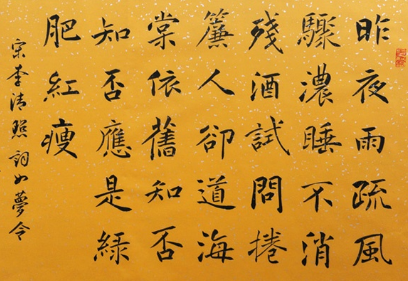 昨夜雨疏風
驟濃睡不消
殘酒試問捲
簾人卻道海
棠依舊知否
知否應是綠
肥紅瘦
宋李清照詞如夢令